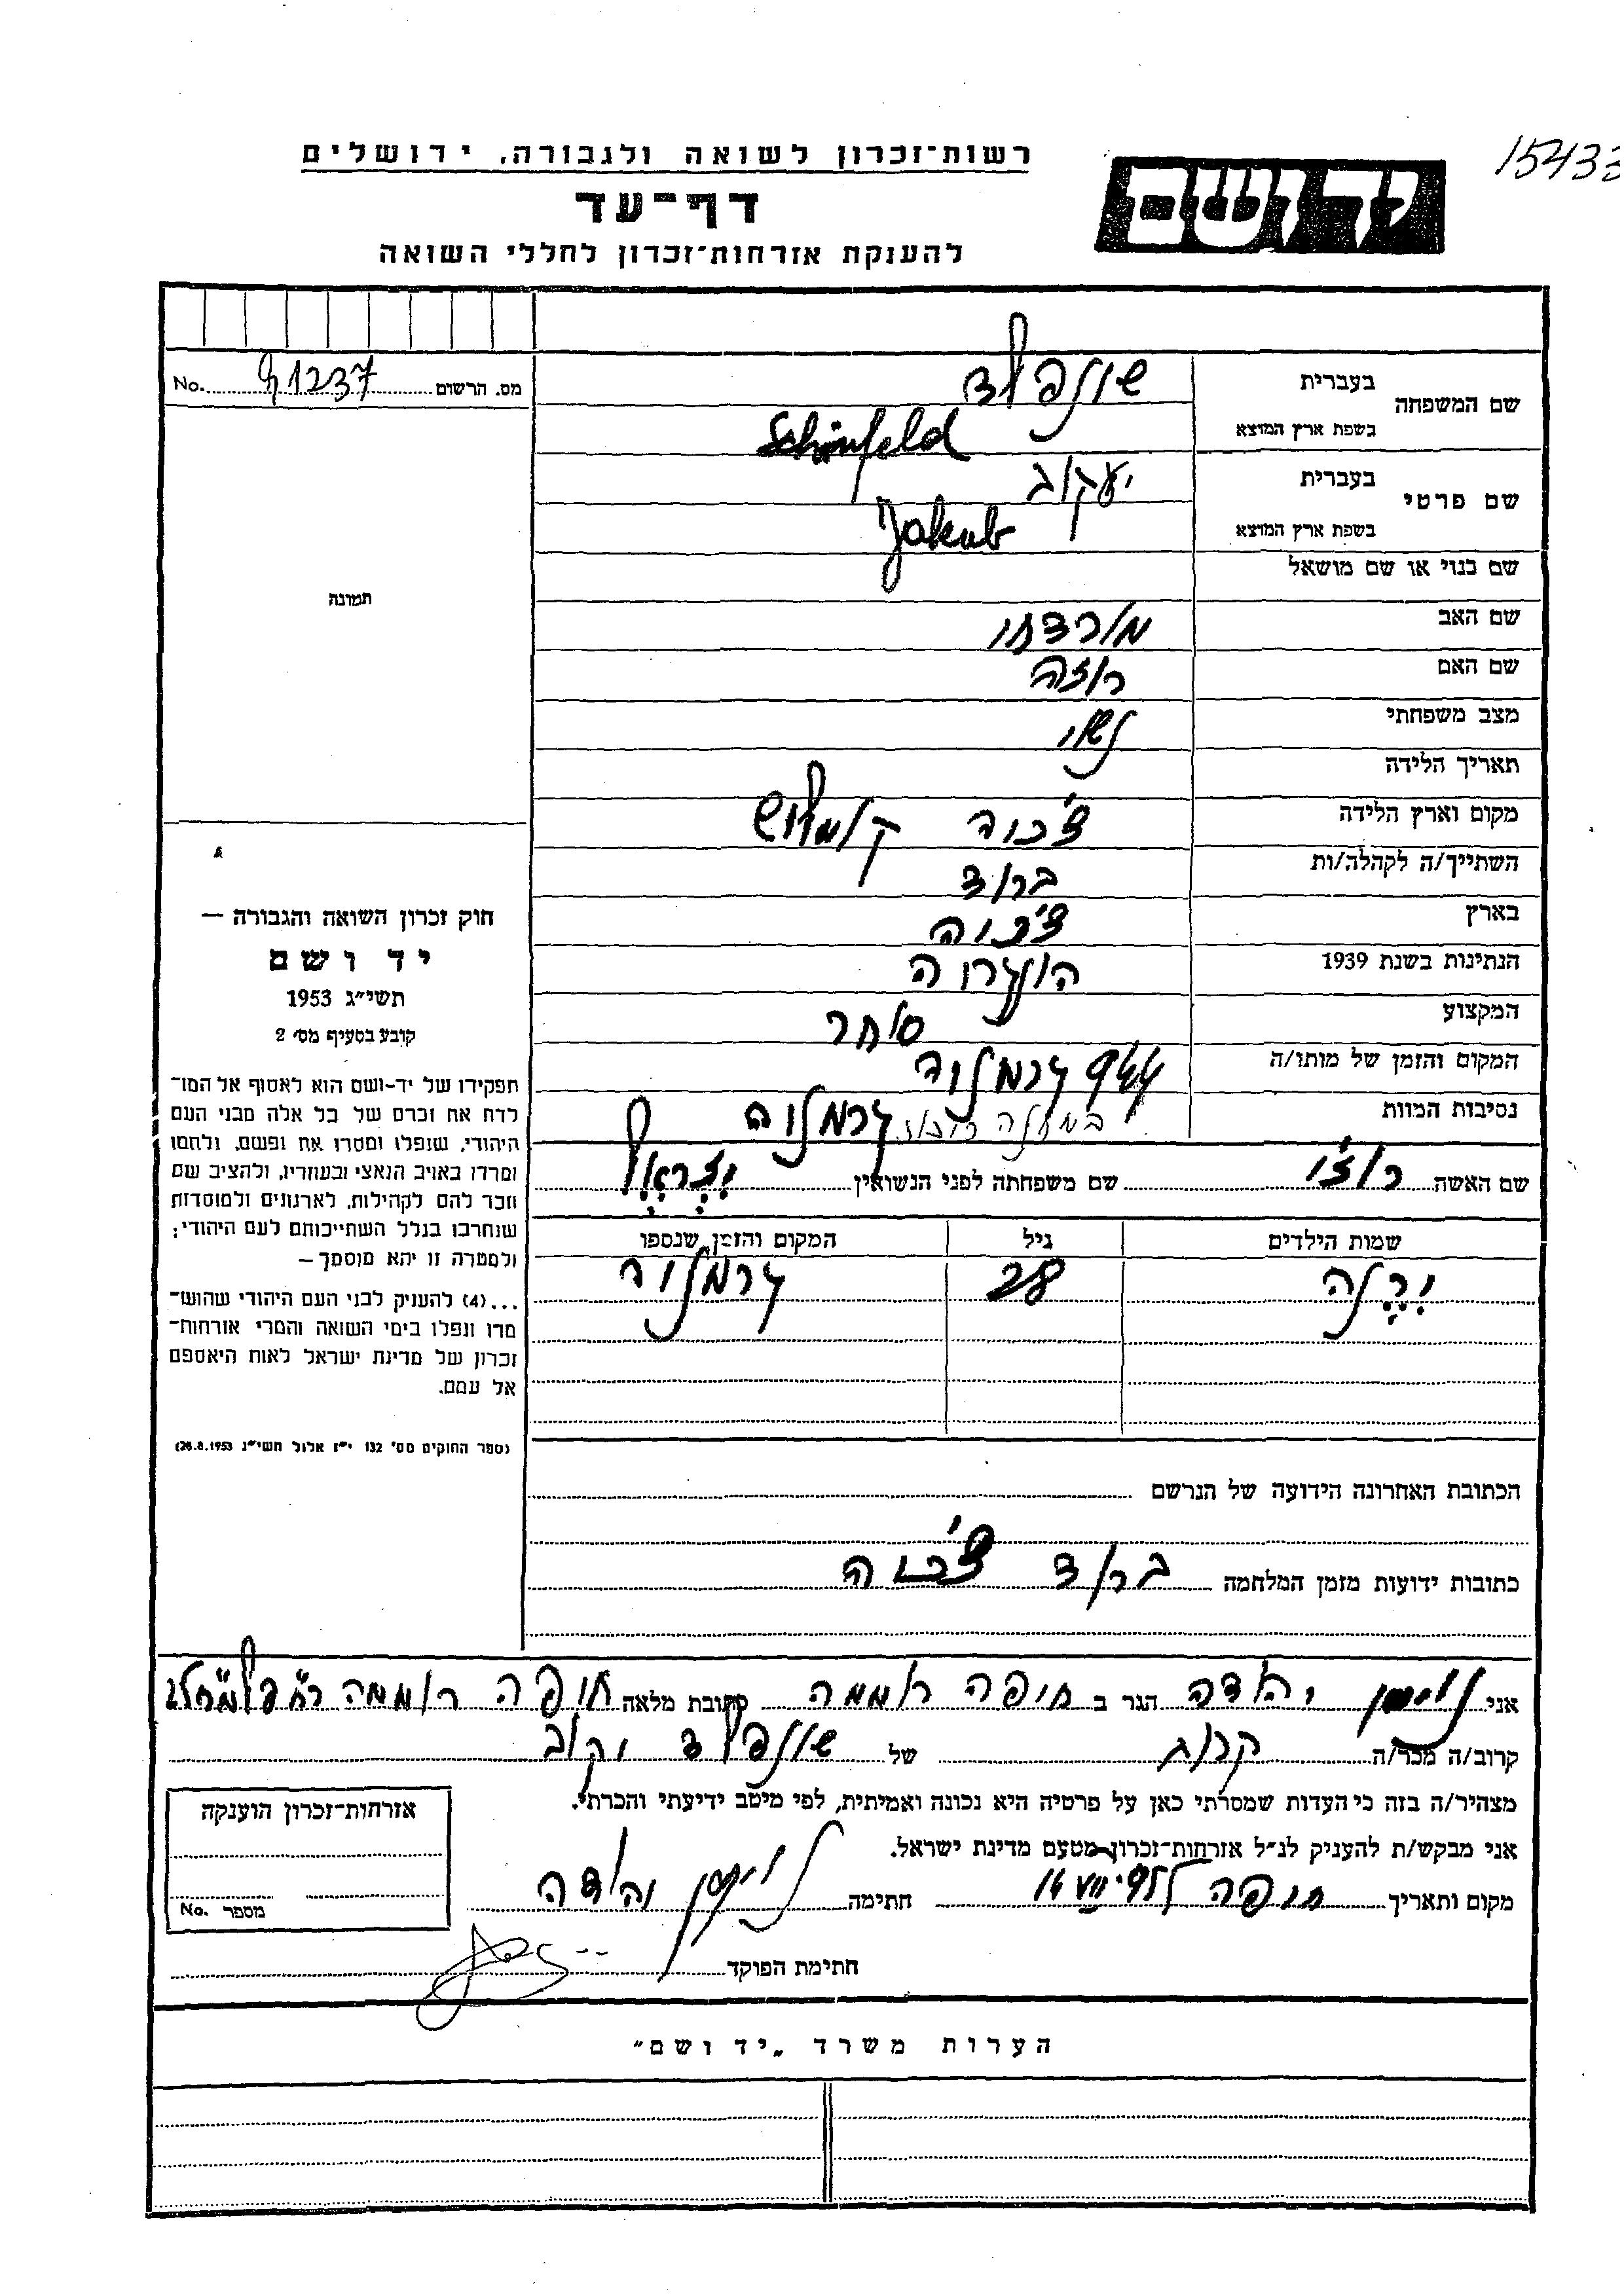 15433
רשות־זכרון לשואה ולגבורה, ירושלים
ידושם
דף־עד
להענקת אזרחות־זכרון לחללי השואה
מס. הרשום 41237 No.
שם המשפחה בעברית שונפלד
בשפת ארץ המוצא Schönfeld
שם פרטי בעברית יעקוב
בשפת ארץ המוצא Jakub
שם כנוי או שם מושאל
תמונה
שם האב מורדחי
שם האם רוזה
מצב משפחתי נשוי
תאריך הלידה
מקום וארץ הלידה צ'כוה
השתייך/ה לקהלה/ות ברוד
בארץ צ'כוה
הנתינות בשנת 1939 הונגרוה
המקצוע סוחר
המקום והזמן של מותו/ה 944 גרמניה
נסיבות המוות גרמניה
שם האשה רוז'י שם משפחתה לפני הנשואין
שמות הילדים גיל המקום והזמן שנספו
יִרֶנה 28 גרמניה
חוק זכרון השואה והגבורה —
יד ושם
תשי״ג 1953
קובע בסעיף מס׳ 2
תפקידו של יד-ושם הוא לאסוף אל המו־
לדת את זכרם של כל אלה מבני העם
היהודי, שנפלו ומסרו את נפשם, ולחמו
ומרדו באויב הנאצי ובעוזריו, ולהציב שם
וזכר להם לקהילות, לארגונים ולמוסדות
שנחרבו בגלל השתייכותם לעם היהודי;
ולמטרה זו יהא מוסמך —
...(4) להעניק לבני העם היהודי שהוש־
מדו ונפלו בימי השואה והמרי אזרחות־
זכרון של מדינת ישראל לאות היאספם
אל עמם.
(ספר החוקים מס׳ 132 י״ז אלול תשי״ג 28.8.1953)
הכתובת האחרונה הידועה של הנרשם
כתובות ידועות מזמן המלחמה ברוד צ'כוה
אני יהודה הגר ב חיפה רוממה כתובת מלאה חיפה רוממה
קרוב/ה מכר/ה קרוב של שונפלד יקוב
מצהיר/ה בזה כי העדות שמסרתי כאן על פרטיה היא נכונה ואמיתית, לפי מיטב ידיעתי והכרתי.
אני מבקש/ת להעניק לנ״ל אזרחות־זכרון מטעם מדינת ישראל.
מקום ותאריך חיפה חתימה יהודה
חתימת הפוקד
אזרחות־זכרון הוענקה
מספר No.
הערות משרד „יד ושם״